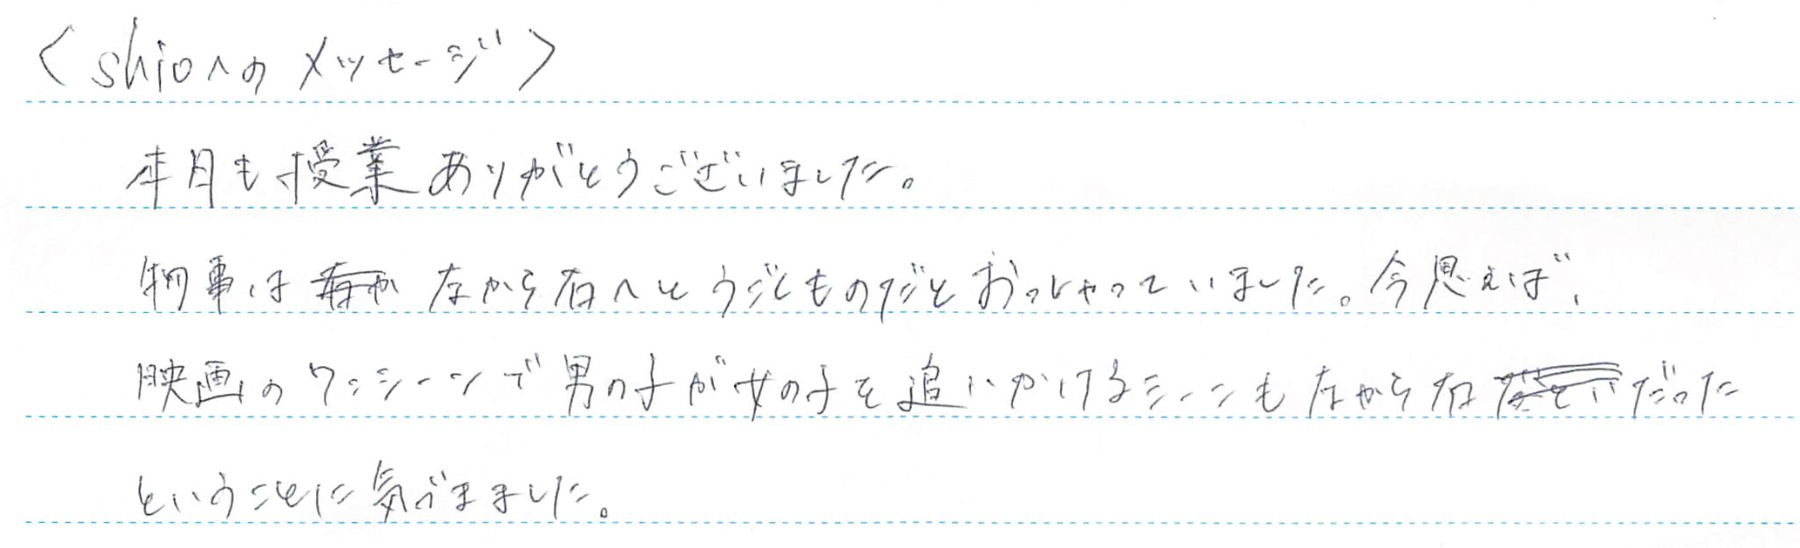 〈shioへのメッセージ〉
本月も授業ありがとうございました。
物事は左から右へとうごくものだとおっしゃっていました。今思えば、
映画のワンシーンで男の子が女の子を追いかけるシーンも左から右だった
ということに気づきました。